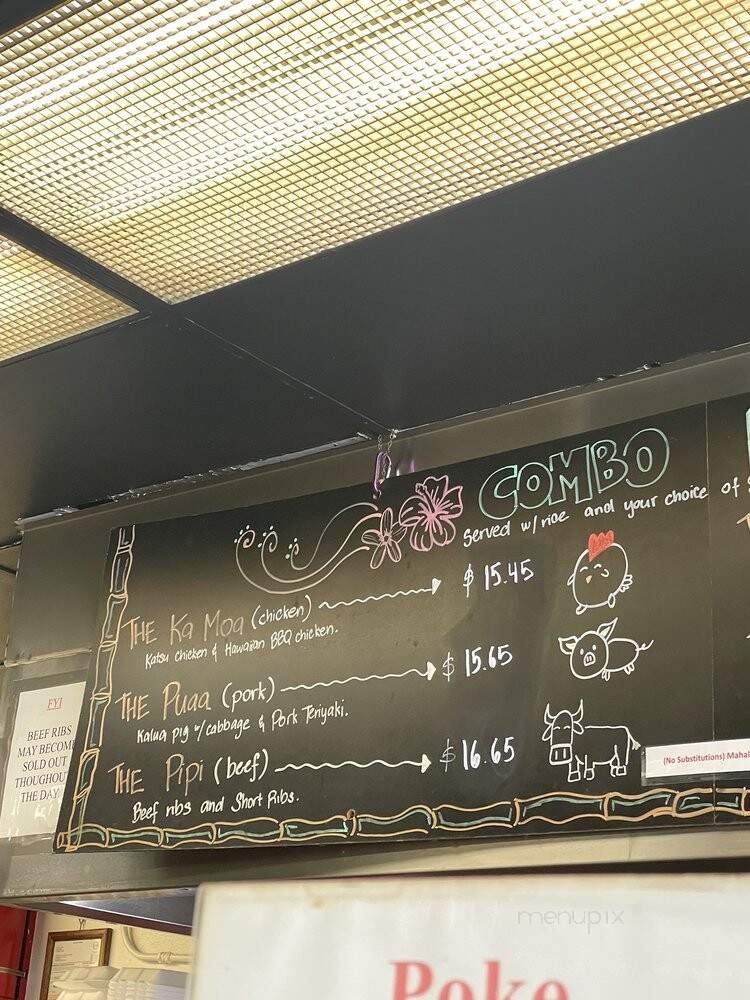 COMBO
Served w/ rice and your choice of
THE Ka Moa (chicken) $ 15.45
Katsu chicken & Hawaiian BBQ chicken.
THE Puaa (pork) $ 15.65
Kalua pig w/cabbage & Pork Teriyaki.
THE Pipi (beef) $ 16.65
Beef ribs and Short Ribs.
(No Substitutions)
FYI
BEEF RIBS
MAY BECOM
SOLD OUT
THOUGHOU
THE DAY
menupix
Poke